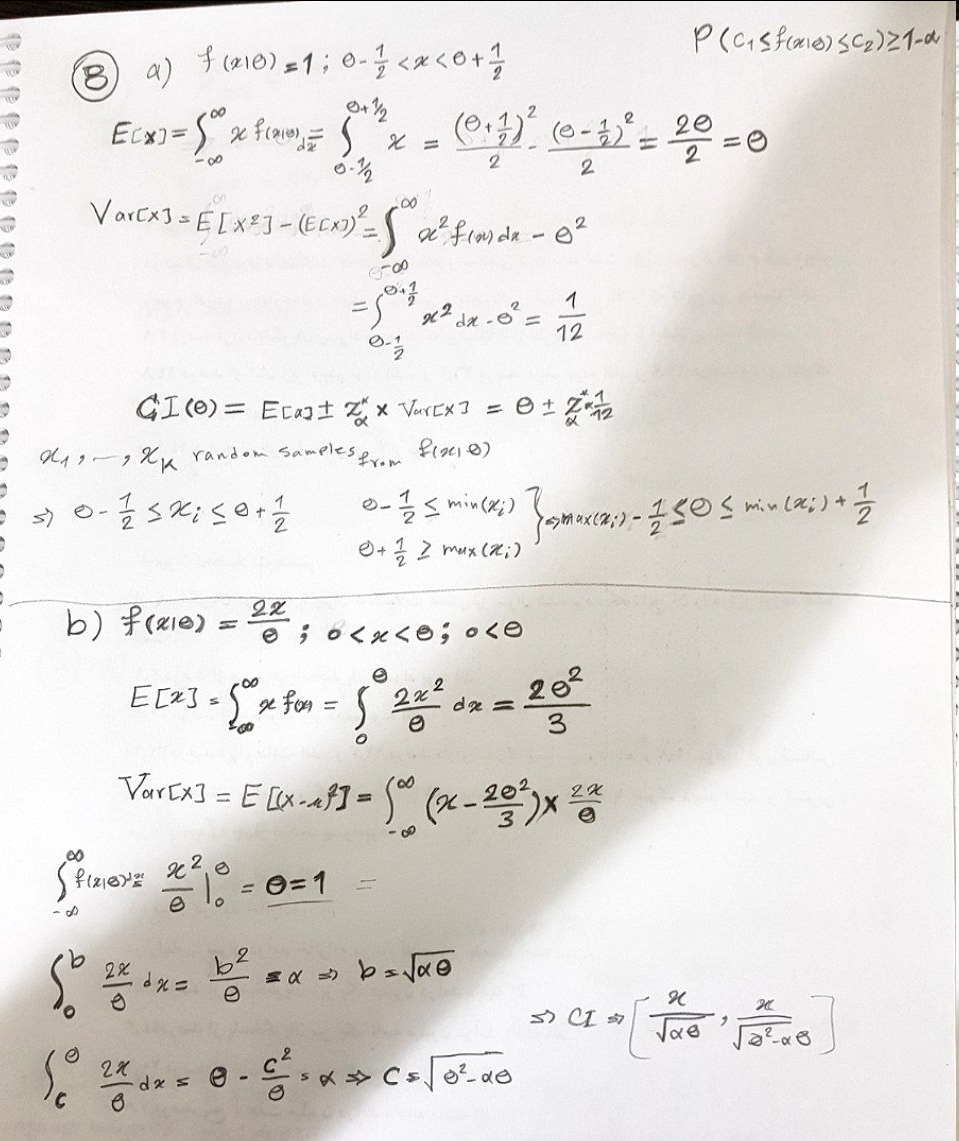 P(C₁≤f(x|θ)≤C₂)≥1-α
⑧ a) f(x|θ)=1; θ-1/2<x<θ+1/2
E[X]=∫_{-∞}^{∞} x f(x|θ)dx = ∫_{θ-1/2}^{θ+1/2} x = (θ+1/2)²/2 - (θ-1/2)²/2 = 2θ/2 = θ
Var[X]=E[X²]-(E[X])²=∫_{-∞}^{∞} x² f(x)dx - θ²
=∫_{θ-1/2}^{θ+1/2} x² dx - θ² = 1/12
CI(θ) = E[x] ± Z*_α × Var[X] = θ ± Z*_α × 1/12
x₁, —, x_K random samples from f(x|θ)
⇒ θ-1/2 ≤ x_i ≤ θ+1/2 θ-1/2 ≤ min(x_i) } ⇒ max(x_i)-1/2 ≤ θ ≤ min(x_i)+1/2
θ+1/2 ≥ max(x_i)
b) f(x|θ) = 2x/θ ; 0<x<θ; 0<θ
E[x] = ∫_{-∞}^{∞} x f(x) = ∫_0^θ 2x²/θ dx = 2θ²/3
Var[X] = E[(X-μ)²] = ∫_{-∞}^{∞} (x - 2θ²/3) × 2x/θ
∫_{-∞}^{∞} f(x|θ)dx = x²/θ |_0^θ = θ=1 =
∫_0^b 2x/θ dx = b²/θ = α ⇒ b=√(αθ)
⇒ CI ⇒ [x/√(αθ), x/√(θ²-αθ)]
∫_c^θ 2x/θ dx = θ - c²/θ = α ⇒ C=√(θ²-αθ)